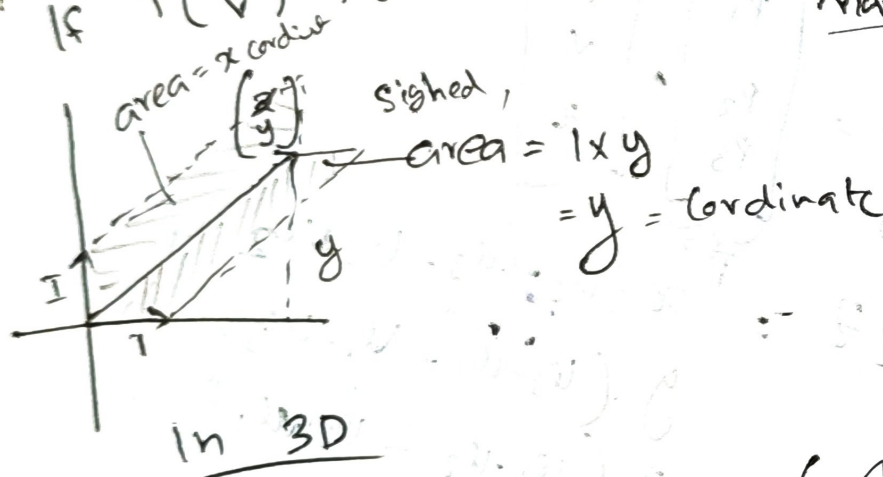 If
area = x cordint
(x
y)
sighed,
area = 1 x y
= y = Cordinate
I
y
1
In 3D